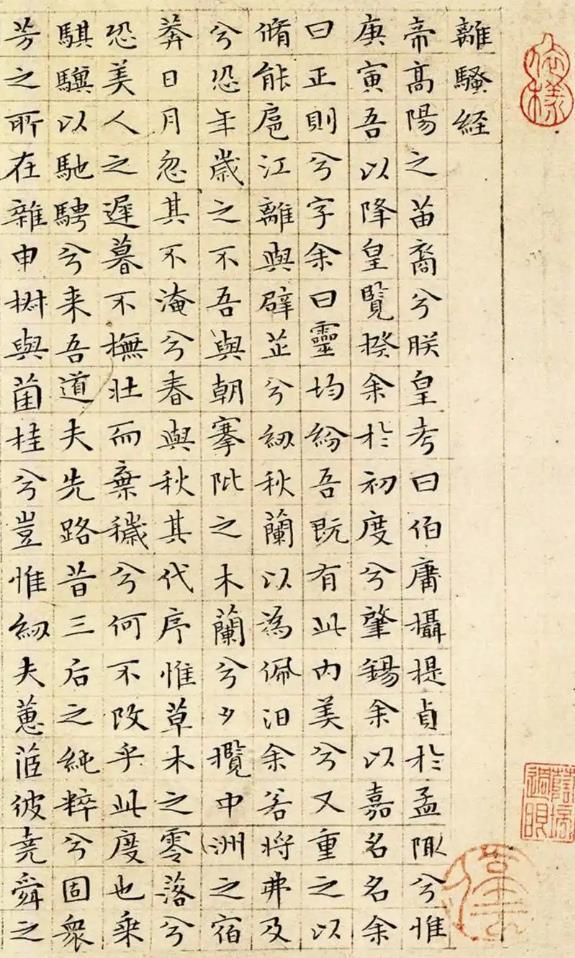 離騷経
帝高陽之苗裔兮朕皇考曰伯庸攝提貞於孟陬兮惟
庚寅吾以降皇覽揆余於初度兮肇錫余以嘉名名余
曰正則兮字余曰靈均紛吾既有此内美兮又重之以
脩能扈江離與辟芷兮紉秋蘭以為佩汩余若將弗及
兮恐年歲之不吾與朝搴阰之木蘭兮夕攬中洲之宿
莽日月忽其不淹兮春與秋其代序惟草木之零落兮
恐美人之遲暮不撫壯而棄穢兮何不改乎此度也乘
騏驥以馳騁兮来吾道夫先路昔三后之純粹兮固衆
芳之所在雜申椒與菌桂兮豈惟紉夫蕙茝彼堯舜之